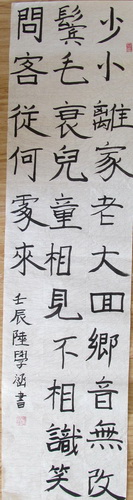 少小離家老大囬鄉音無改
鬢毛衰兒童相見不相識笑
問客從何處來
壬辰陸學涵書